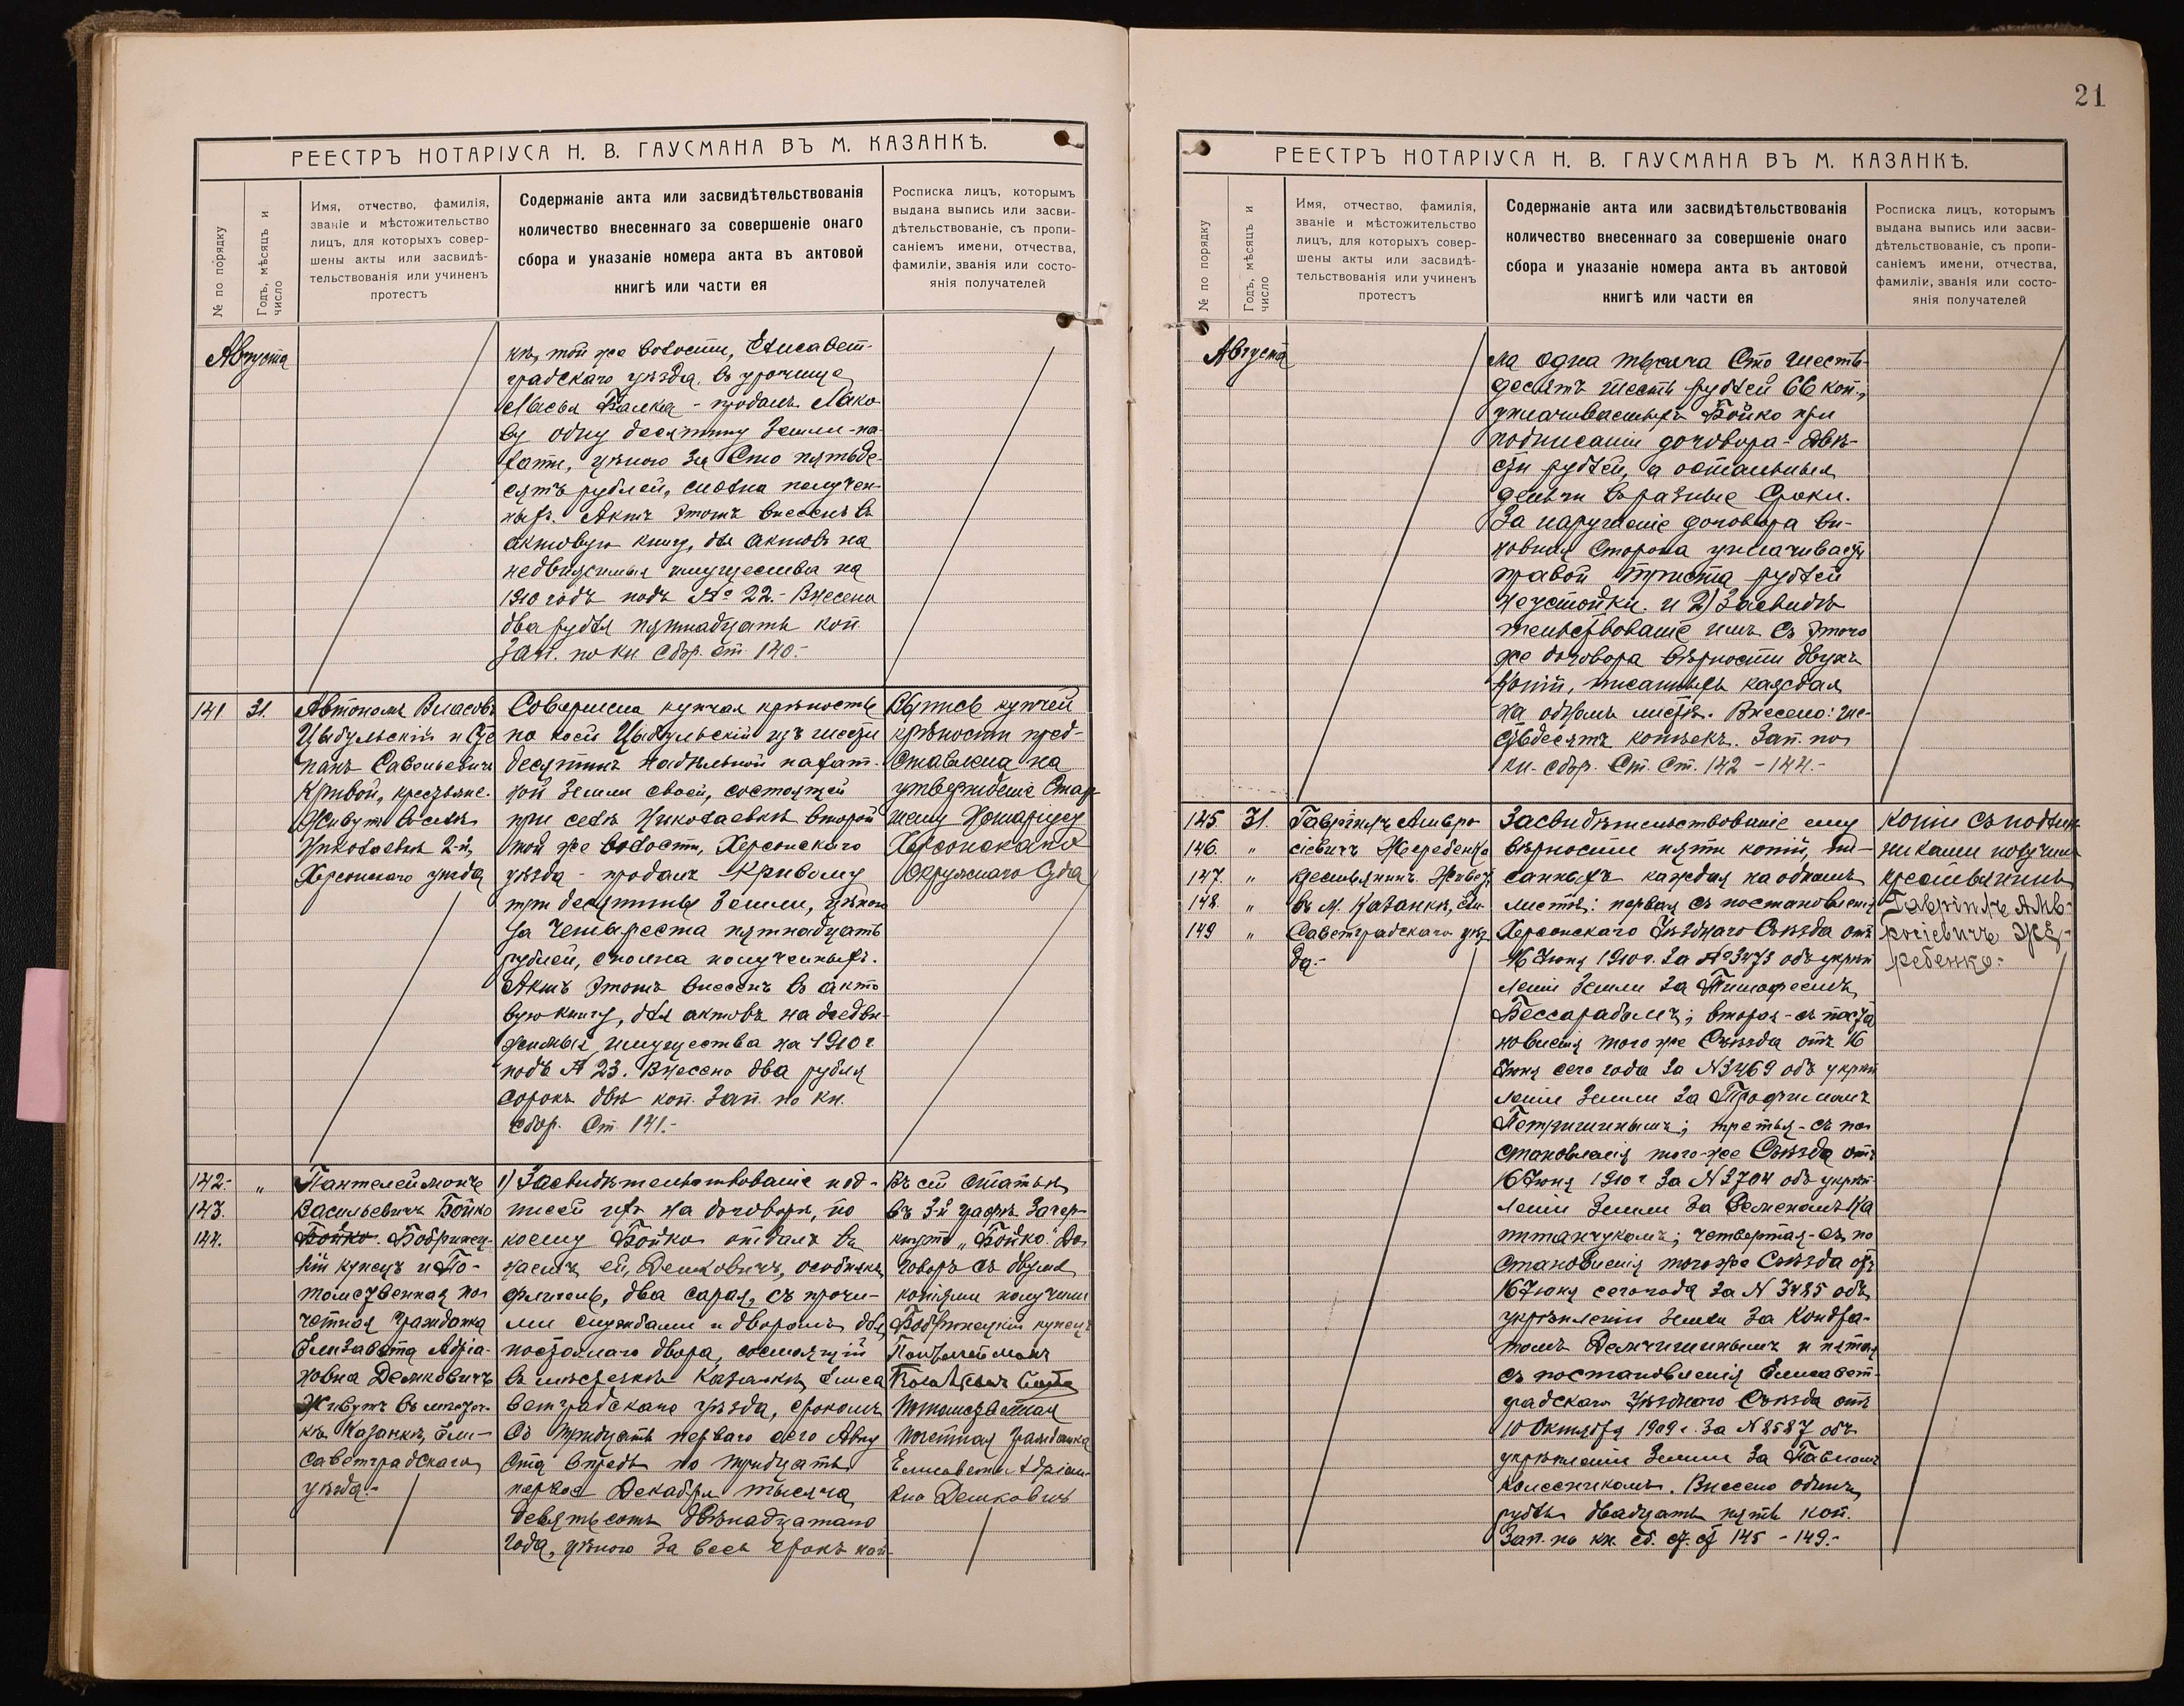 РЕЕСТРЪ НОТАРІУСА Н. В. ГАУСМАНА ВЪ М. КАЗАНКѢ.
№ по порядку
Годъ, мѣсяцъ и
число
Имя, отчество, фамилія,
званіе и мѣстожительство
лицъ, для которыхъ совер-
шены акты или засвидѣ-
тельствованія или учиненъ
протестъ
Содержаніе акта или засвидѣтельствованія
количество внесеннаго за совершеніе онаго
сбора и указаніе номера акта въ актовой
книгѣ или части ея
Росписка лицъ, которымъ
выдана выпись или засви-
дѣтельствованіе, съ пропи-
саніемъ имени, отчества,
фамиліи, званія или состо-
янія получателей
Августа
кѣ, той же волости, Елисавет-
градскаго уѣзда, въ урочище
Лысья Балка - продалъ Лако-
ву одну десятину земли -па-
хати, цѣною за Сто пятьде-
сятъ рублей, сполна получен-
ныхъ. Актъ этотъ внесенъ въ
актовую книгу, для актовъ на
недвижимыя имущества на
1910 годъ подъ № 22.- Внесено
два рубля пятнадцать коп.
Зап. по кн. сбор. ст. 140.-
141
31.
Автономъ Власовъ
Цыбульскій и Сте
панъ Савельевичъ
Кривой, крестьяне.
Живутъ въ селѣ
Николаевкѣ 2-й,
Херсонскаго уѣзда
Совершена купчая крѣпость
по коей Цыбульскій изъ шести
десятинъ надѣльной пахат-
ной земли своей, состоящей
при селѣ Николаевкѣ второй
той же волости, Херсонскаго
уѣзда - продалъ Кривому
три десятины земли, цѣною
за четыреста пятнадцать
рублей, сполна полученныхъ.
Актъ этотъ внесенъ въ акто
вую книгу, для актовъ на недви
жимыя имущества на 1910 г.
подъ № 23. Внесено два рубля
сорокъ двѣ коп. Зап. по кн.
сбор. Ст. 141.-
Выпись купчей
крѣпости пред-
ставлена на
утвержденіе Стар
шему Нотаріусу
Херсонскаго
Окружнаго Суда
142.-
143.
144.
"
Пантелеймонъ
Васильевичъ Бойко
Бойко. Бобринец-
кій купецъ и По-
томственная по
четная гражданка
Елизавета Адріа-
новна Демковичъ
Живутъ въ мѣстеч-
кѣ Казанкѣ, Ели-
саветградскаго
уѣзда.-
1) Засвидѣтельствованіе под-
писей ихъ на договорѣ, по
коему Бойко отдалъ въ
наемъ ей, Демковичъ, особнякъ
флигель, два сарая, съ прочи-
ми службами и дворомъ для
постоялаго двора, состоящій
въ мѣстечкѣ Казанкѣ, Елиса
ветградскаго уѣзда, срокомъ
Съ тридцать перваго сего Авгу
ста впредь по тридцать
первое Декабря тысяча
девятьсотъ двѣнадцатаго
года, цѣною за весь срокъ най-
Въ сей статьѣ
въ 3-й графѣ зачер-
кнуто „Бойко". До
говоръ съ двумя
копіями получили
Бобринецкій купецъ
Пантелеймонъ
Потомственная
почетная гражданка
Елисавета Адріан-
вна Демковичъ
21
РЕЕСТРЪ НОТАРІУСА Н. В. ГАУСМАНА ВЪ М. КАЗАНКѢ.
№ по порядку
Годъ, мѣсяцъ и
число
Имя, отчество, фамилія,
званіе и мѣстожительство
лицъ, для которыхъ совер-
шены акты или засвидѣ-
тельствованія или учиненъ
протестъ
Содержаніе акта или засвидѣтельствованія
количество внесеннаго за совершеніе онаго
сбора и указаніе номера акта въ актовой
книгѣ или части ея
Росписка лицъ, которымъ
выдана выпись или засви-
дѣтельствованіе, съ пропи-
саніемъ имени, отчества,
фамиліи, званія или состо-
янія получателей
Августа
ма одна тысяча Сто шесть-
десятъ шесть рублей 66 коп.,
уплачиваемыхъ Бойко при
подписаніи договора - двѣ-
сти рублей, а остальныя
деньги въ разные сроки.
За нарушеніе договора ви-
новная сторона уплачиваетъ
правой триста рублей
неустойки. и 2) Засвидѣ
тельствованіе имъ съ этого
же договора вѣрности двухъ
копій, писанныхъ каждая
на одномъ листѣ. Внесено: ше-
стьдесятъ копѣекъ. Зап. по
кн. сбор. Ст. Ст. 142 - 144.-
145.
146.
147.
148.
149
31.
"
"
"
"
Гавріилъ Амвро
сіевичъ Жеребенко
крестьянинъ. Живетъ
въ М. Казанкѣ, Ели-
саветградскаго уѣз-
да.-
Засвидѣтельствованіе ему
вѣрности пяти копій, пи-
санныхъ каждая на одномъ
листѣ: первая съ постановленія
Херсонскаго Уѣзднаго Съѣзда отъ
16 Іюня 1910 г. за № 3473 объ укрѣп
леніи земли за Тимофеемъ
Бессарабомъ; вторая - съ поста
новленія того же Съѣзда отъ 16
Іюня сего года за № 3469 объ укрѣп
леніи земли за Трофимомъ
Петричинымъ; третья - съ по
становленія того-же Съѣзда отъ
16 Іюня 1910 г. за № 3704 объ укрѣп-
леніи земли за Семеномъ Ка
питанчукомъ; четвертая - съ по
становленія того же Съѣзда отъ
16 Іюня сего года за № 3485 объ
укрѣпленіи земли за Кондра-
томъ Демчишинымъ и пятая
съ постановленія Елисавет-
градскаго Уѣзднаго Съѣзда отъ
10 Октября 1909 г. за № 8587 объ
укрѣпленіи земли за Павломъ
Колесникомъ. Внесено одинъ
рубль двадцать пять коп.
Зап. по кн. сб. ст. ст 145 - 149.-
Копіи съ подлин-
никами получилъ
крестьянинъ
Гавріилъ Амв-
росіевичъ Же-
ребенко.-